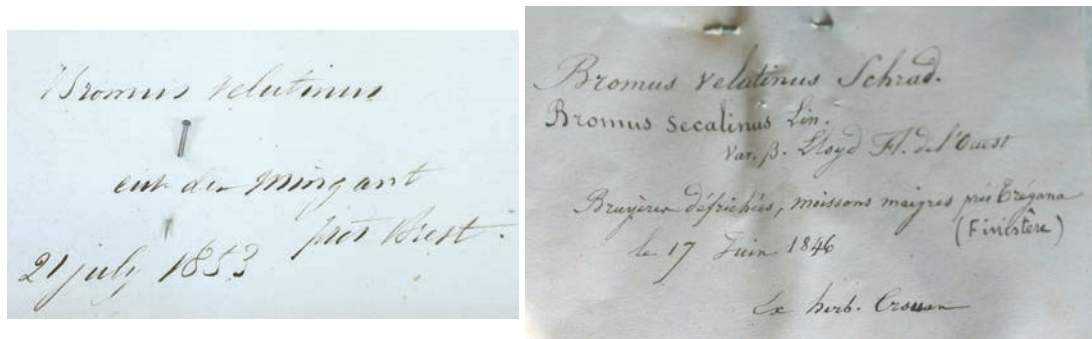 Bromus velutinus
de Mingant
près Brest.
21 july 1853
Bromus velutinus Schrad.
Bromus secalinus Lin.
Var. β. Lloyd Fl. de l'Ouest
Bruyères défrichées, moissons maigres près Trégana
(Finistère)
le 17 Juin 1846
Ex herb. Crouan